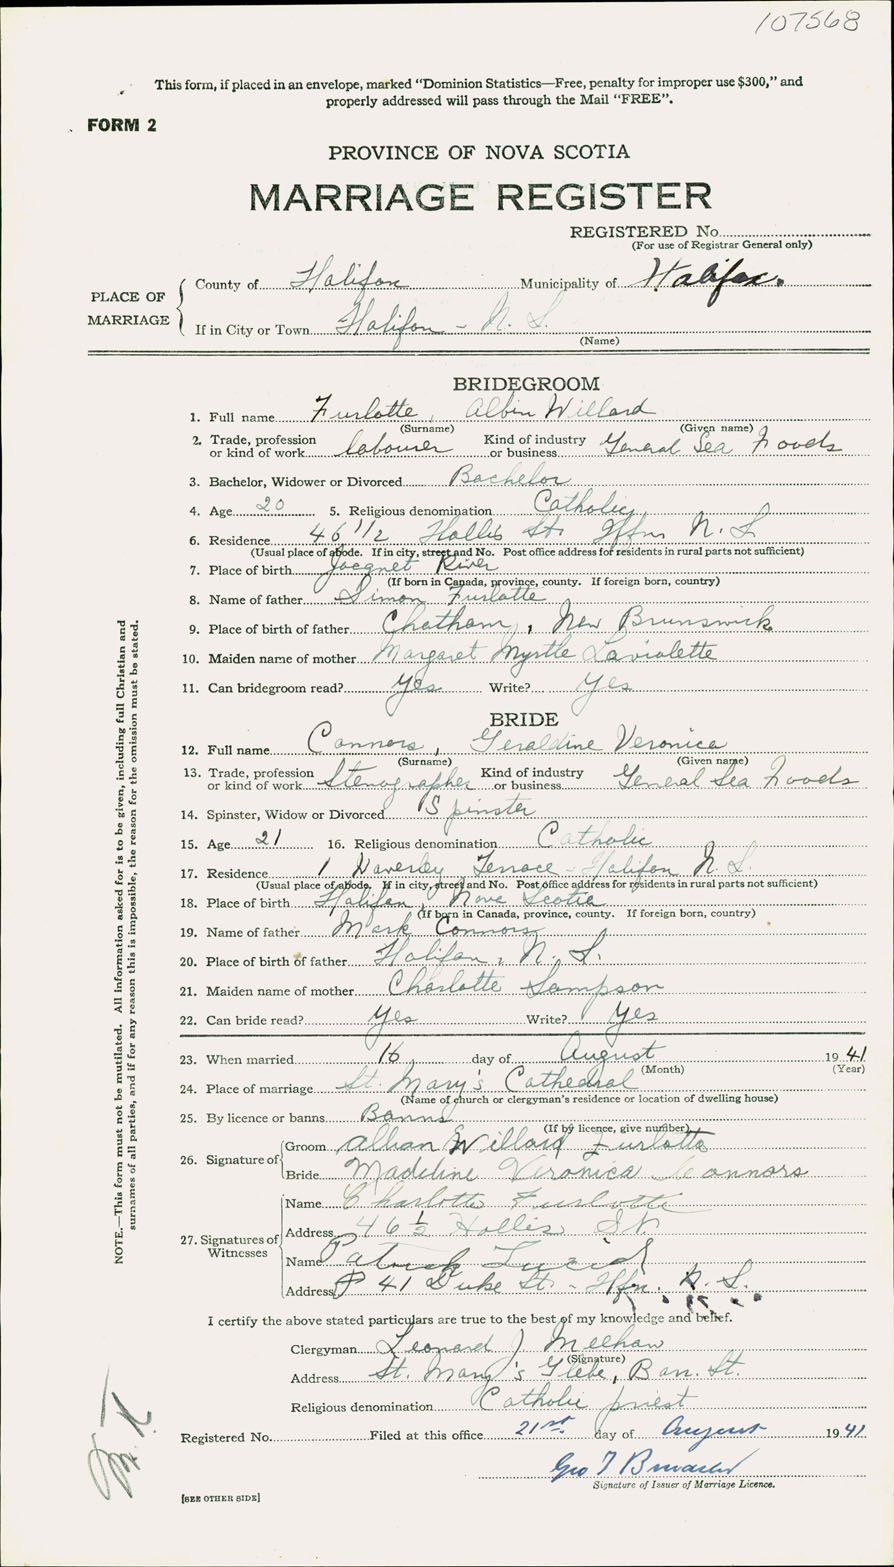 107568
This form, if placed in an envelope, marked "Dominion Statistics—Free, penalty for improper use $300," and
properly addressed will pass through the Mail "FREE".
FORM 2
PROVINCE OF NOVA SCOTIA
MARRIAGE REGISTER
REGISTERED No.
(For use of Registrar General only)
PLACE OF MARRIAGE
County of Halifax Municipality of Halifax.
If in City or Town Halifax - N. S.
(Name)
BRIDEGROOM
1. Full name Furlotte, Albin Willard
(Surname) (Given name)
2. Trade, profession or kind of work labourer Kind of industry or business General Sea Foods
3. Bachelor, Widower or Divorced Bachelor
4. Age 20 5. Religious denomination Catholic
6. Residence 46 1/2 Hollis St. Hfx N. S.
(Usual place of abode. If in city, street and No. Post office address for residents in rural parts not sufficient)
7. Place of birth Jacquet River
(If born in Canada, province, county. If foreign born, country)
8. Name of father Simon Furlotte
9. Place of birth of father Chatham, New Brunswick
10. Maiden name of mother Margaret Myrtle Laviolette
11. Can bridegroom read? Yes Write? Yes
BRIDE
12. Full name Connors, Geraldine Veronica
(Surname) (Given name)
13. Trade, profession or kind of work Stenographer Kind of industry or business General Sea Foods
14. Spinster, Widow or Divorced Spinster
15. Age 21 16. Religious denomination Catholic
17. Residence 1 Waverley Terrace - Halifax N. S.
(Usual place of abode. If in city, street and No. Post office address for residents in rural parts not sufficient)
18. Place of birth Halifax, Nova Scotia
(If born in Canada, province, county. If foreign born, country)
19. Name of father Mark Connors
20. Place of birth of father Halifax, N. S.
21. Maiden name of mother Charlotte Sampson
22. Can bride read? Yes Write? Yes
23. When married 16 day of August 1941
(Month) (Year)
24. Place of marriage St. Mary's Cathedral
(Name of church or clergyman's residence or location of dwelling house)
25. By licence or banns Banns
(If by licence, give number)
26. Signature of
Groom Alban Willard Furlotte
Bride Madeline Veronica Connors
27. Signatures of Witnesses
Name Charlotte Furlotte
Address 46 1/2 Hollis St.
Name Patrick Lucid
Address 41 Duke St. - Hfx. N. S.
I certify the above stated particulars are true to the best of my knowledge and belief.
Clergyman Leonard J Meehan
(Signature)
Address St. Mary's Glebe, Barr. St.
Religious denomination Catholic priest
Registered No. Filed at this office 21st day of August 1941
Geo T
Signature of Issuer of Marriage Licence.
[SEE OTHER SIDE]
NOTE.—This form must not be mutilated. All information asked for is to be given, including full Christian and
surnames of all parties, and if for any reason this is impossible, the reason for the omission must be stated.